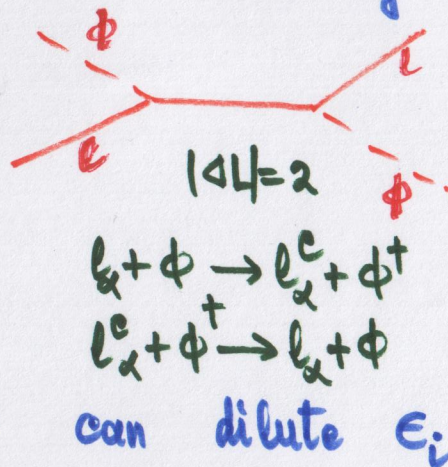 ϕ
l
l
|ΔL|=2
ϕ
l_α + ϕ → l_α^c + ϕ†
l_α^c + ϕ† → l_α + ϕ
can dilute ϵ_i